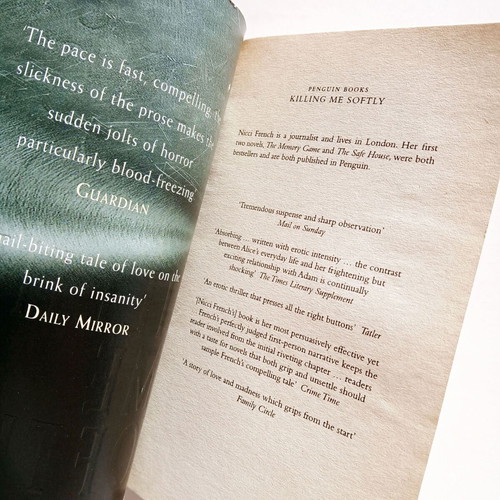 'The pace is fast, compelling, the
slickness of the prose makes the
sudden jolts of horror
particularly blood-freezing'
GUARDIAN
nail-biting tale of love on the
brink of insanity'
DAILY MIRROR
PENGUIN BOOKS
KILLING ME SOFTLY
Nicci French is a journalist and lives in London. Her first
two novels, The Memory Game and The Safe House, were both
bestsellers and are both published in Penguin.
'Tremendous suspense and sharp observation'
Mail on Sunday
'Absorbing ... written with erotic intensity ... the contrast
between Alice's everyday life and her frightening but
exciting relationship with Adam is continually
shocking' The Times Literary Supplement
'An erotic thriller that presses all the right buttons' Tatler
'[Nicci French's] book is her most persuasively effective yet
French's perfectly judged first-person narrative keeps the
reader involved from the initial riveting chapter ... readers
with a taste for novels that both grip and unsettle should
sample French's compelling tale' Crime Time
'A story of love and madness which grips from the start'
Family Circle